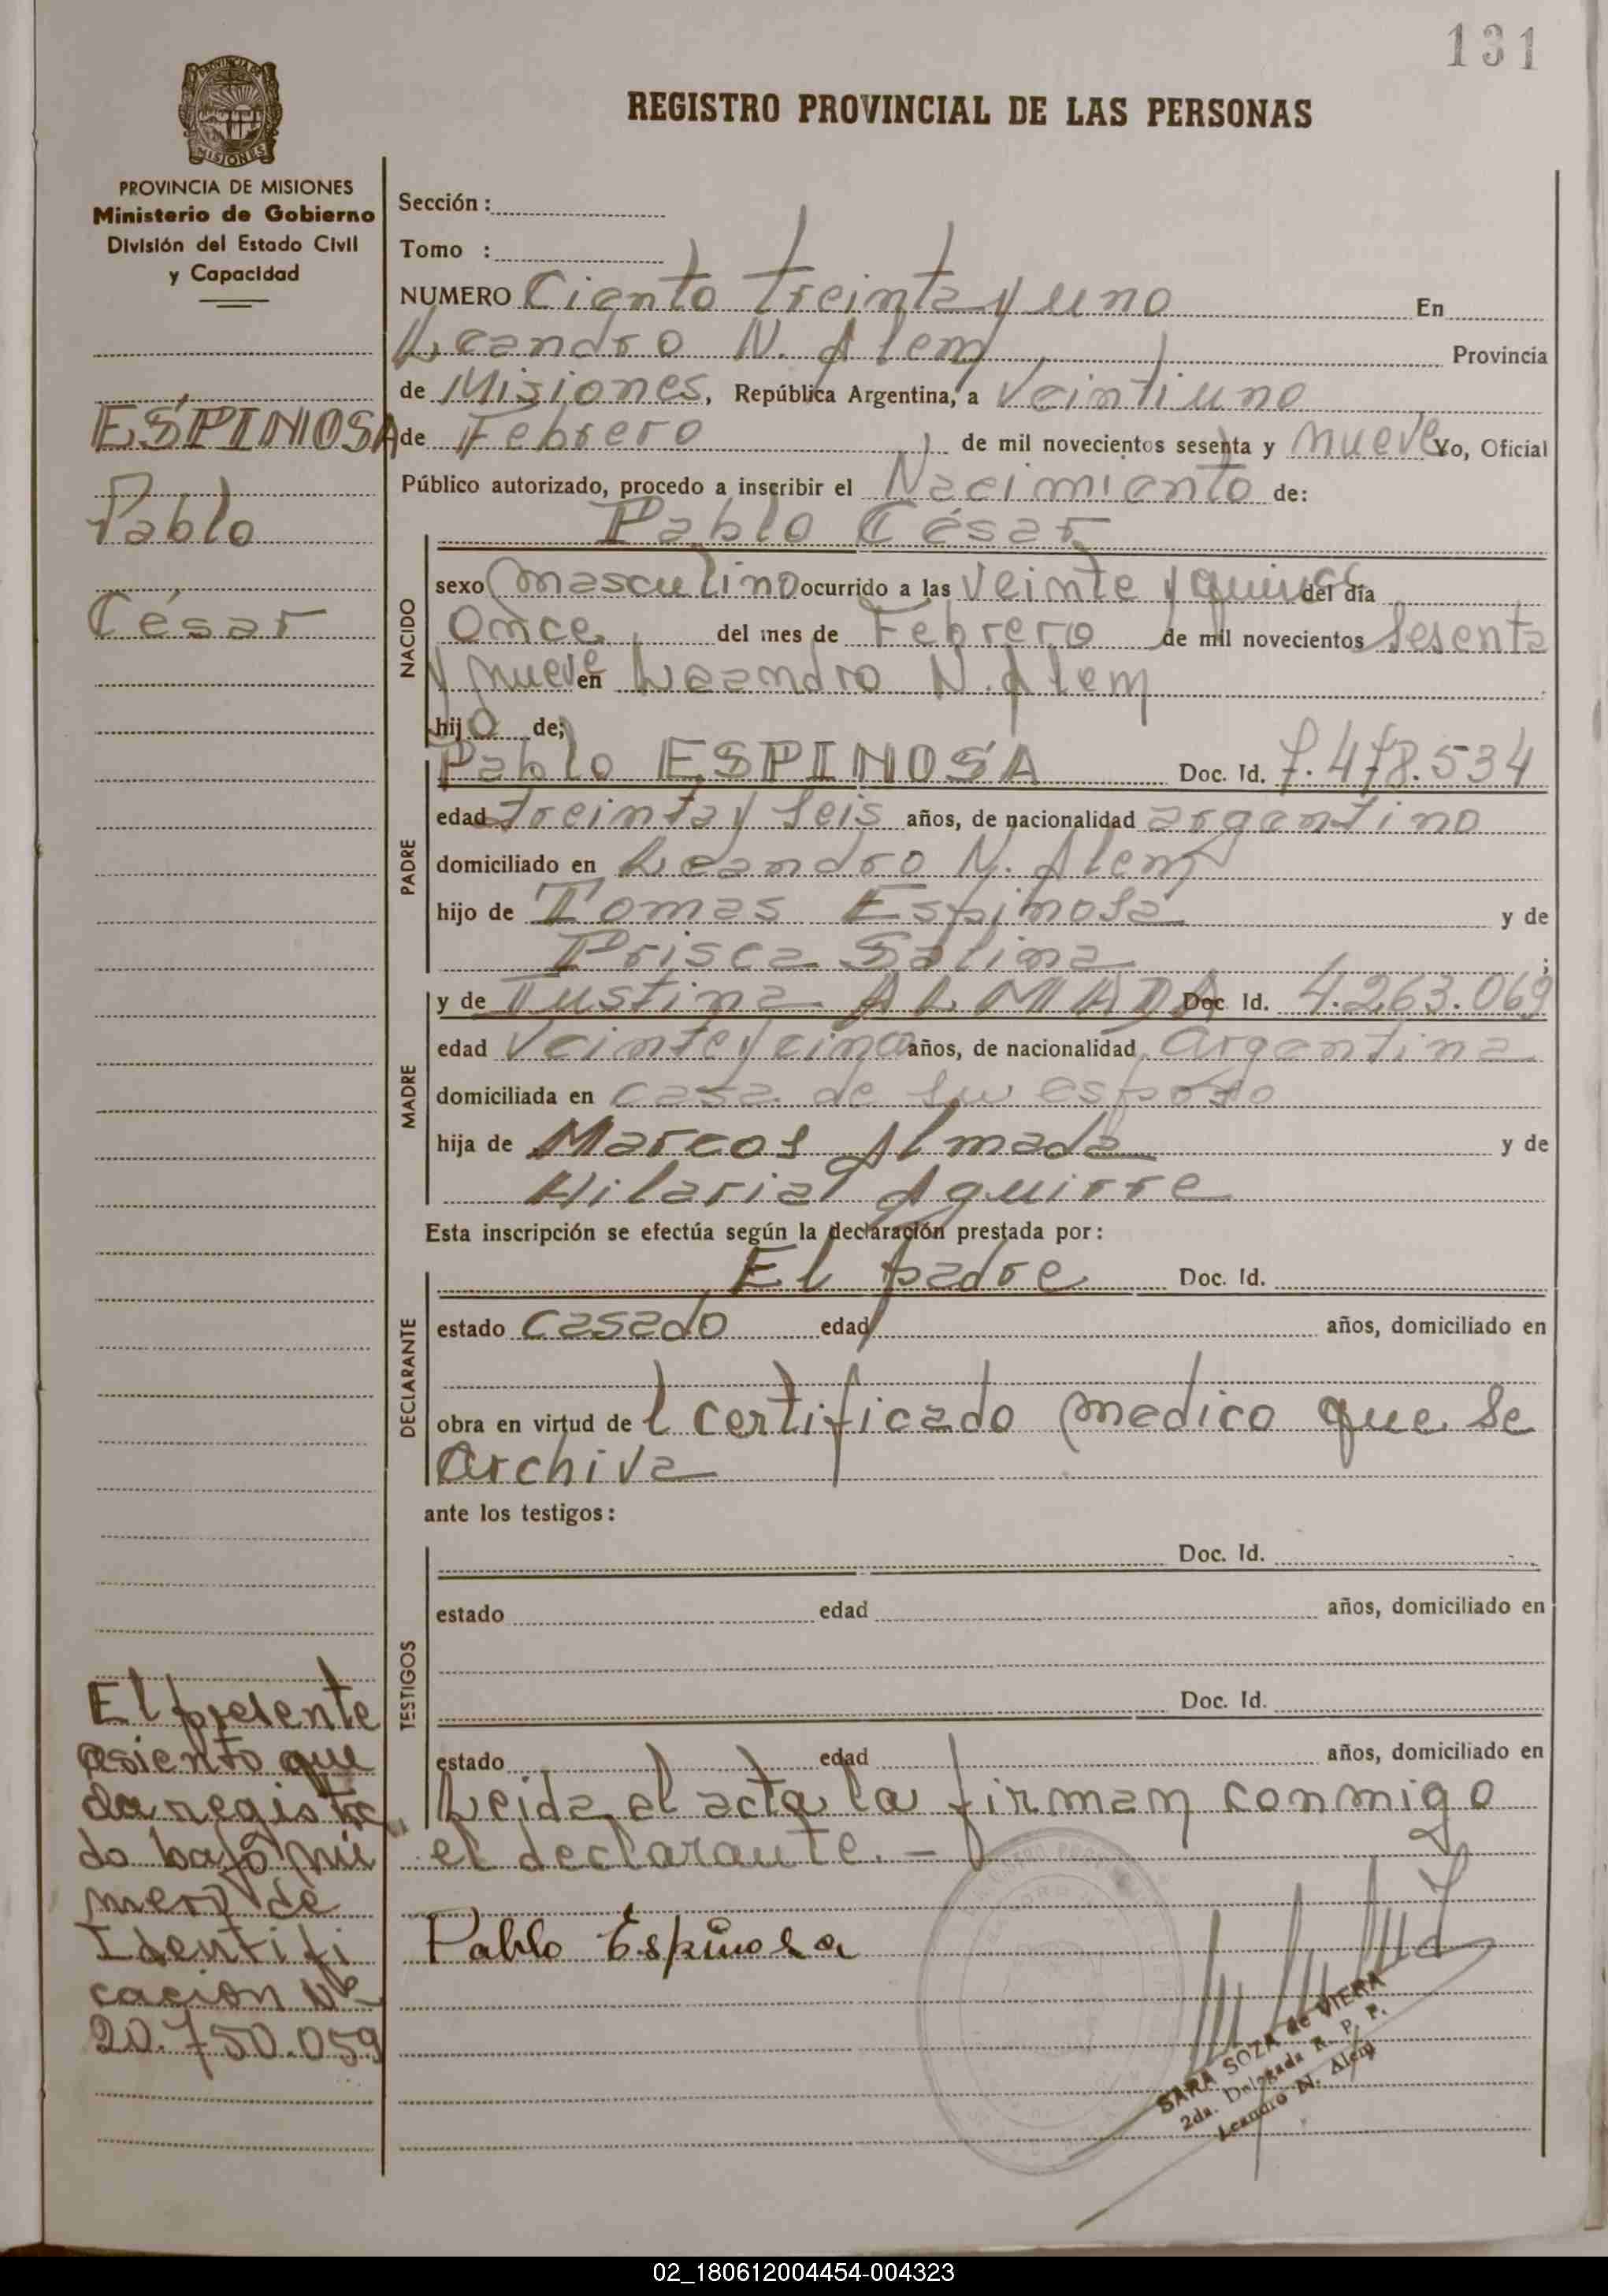 131
REGISTRO PROVINCIAL DE LAS PERSONAS
PROVINCIA DE MISIONES
MISIONES
PROVINCIA DE MISIONES
Ministerio de Gobierno
División del Estado Civil
y Capacidad
ESPINOSA
Pablo
César
Sección :
Tomo :
NUMERO Ciento treinta y uno En
Leandro N. Alem Provincia
de Misiones, República Argentina, a Veintiuno
de Febrero de mil novecientos sesenta y nueve Yo, Oficial
Público autorizado, procedo a inscribir el Nacimiento de:
NACIDO
Pablo César
sexo masculino ocurrido a las Veinte y quince del día
Once del mes de Febrero de mil novecientos Sesenta
y nueve en Leandro N. Alem
hijo de;
PADRE
Pablo ESPINOSA Doc. Id. 7.478.534
edad treinta y seis años, de nacionalidad argentino
domiciliado en Leandro N. Alem
hijo de Tomas Espinosa y de
Prisca Galina ;
MADRE
y de Justina ALMADA Doc. Id. 4.263.069
edad Veinte y cinco años, de nacionalidad Argentina
domiciliada en casa de su esposo
hija de Marcos Almada y de
Hilaria Aguirre
Esta inscripción se efectúa según la declaración prestada por:
DECLARANTE
El padre Doc. Id.
estado casado edad años, domiciliado en
obra en virtud del certificado medico que se
Archiva
ante los testigos:
TESTIGOS
Doc. Id.
estado edad años, domiciliado en
Doc. Id.
estado edad años, domiciliado en
Leida el acta la firman conmigo
el declarante. -
Pablo Espinosa
SARA SOZA de VIERA
2da. Delegada R. P. P.
Leandro N. Alem
El presente
asiento que
da registra
do bajo nú
mero de
Identifi
cación Nº
20.750.059
02_180612004454-004323